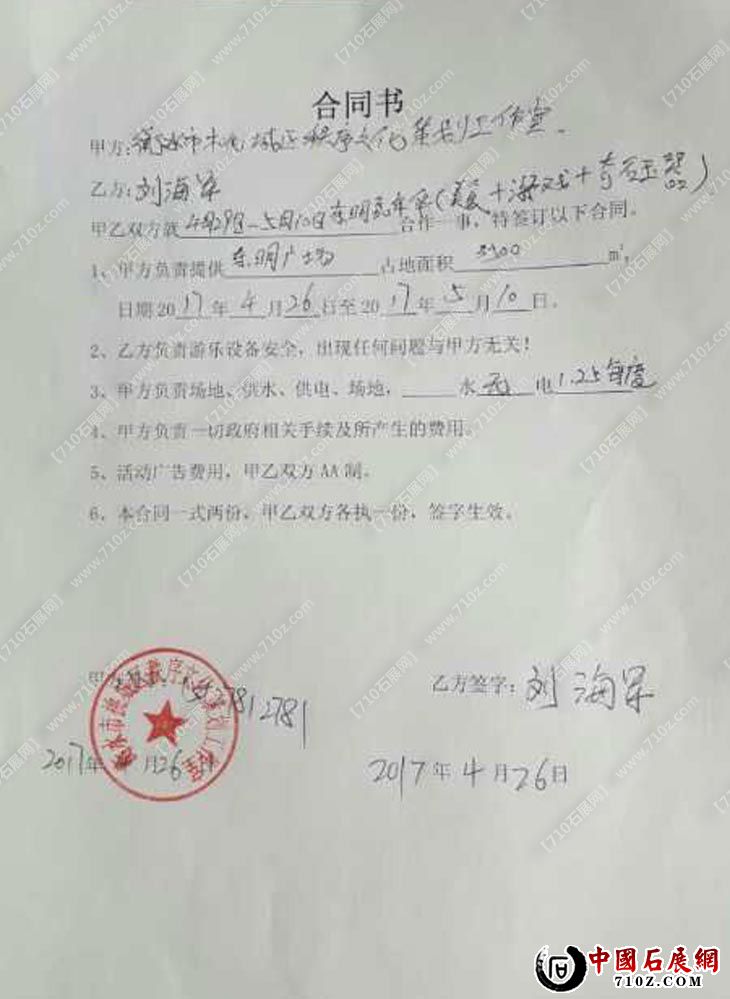 合同书
甲方：衡水市桃城区秩序文化策划工作室。
乙方：刘海军
甲乙双方就4月29日-5月10日东明嘉年华（美食+游戏+奇石玉器）合作一事，特签订以下合同。
1、甲方负责提供东明广场占地面积3500m²，
日期2017年4月26日至2017年5月10日。
2、乙方负责游乐设备安全，出现任何问题与甲方无关！
3、甲方负责场地、供水、供电、场地，水 电1.25每度
4、甲方负责一切政府相关手续及所产生的费用。
5、活动广告费用，甲乙双方AA制。
6、本合同一式两份，甲乙双方各执一份，签字生效。
甲 7812781
乙方签字：刘海军
衡水市桃城区秩序文化策划工作室
2017年 月26
2017年4月26日
【710石展网】www.710z.com
中國石展網
710Z.COM